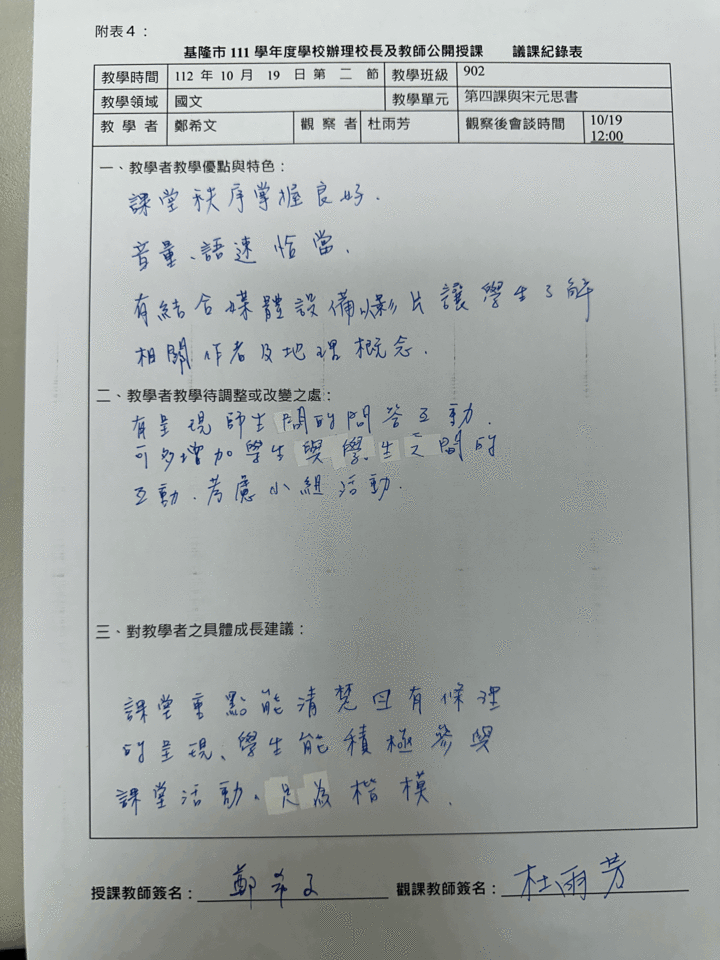 附表4：
基隆市 111 學年度學校辦理校長及教師公開授課 議課紀錄表
教學時間 112 年 10 月 19 日第 二 節 教學班級 902
教學領域 國文 教學單元 第四課與宋元思書
教學者 鄭希文 觀察者 杜雨芳 觀察後會談時間 10/19
12:00
一、教學者教學優點與特色：
課堂秩序掌握良好．
音量、語速恰當．
有結合媒體設備以影片讓學生了解
相關作者及地理概念．
二、教學者教學待調整或改變之處：
有呈現師生間的問答互動．
可多增加學生與學生之間的
互動．考慮小組活動．
三、對教學者之具體成長建議：
課堂重點能清楚且有條理
的呈現、學生能積極參與
課堂活動。足為楷模．
授課教師簽名：鄭希文 觀課教師簽名：杜雨芳